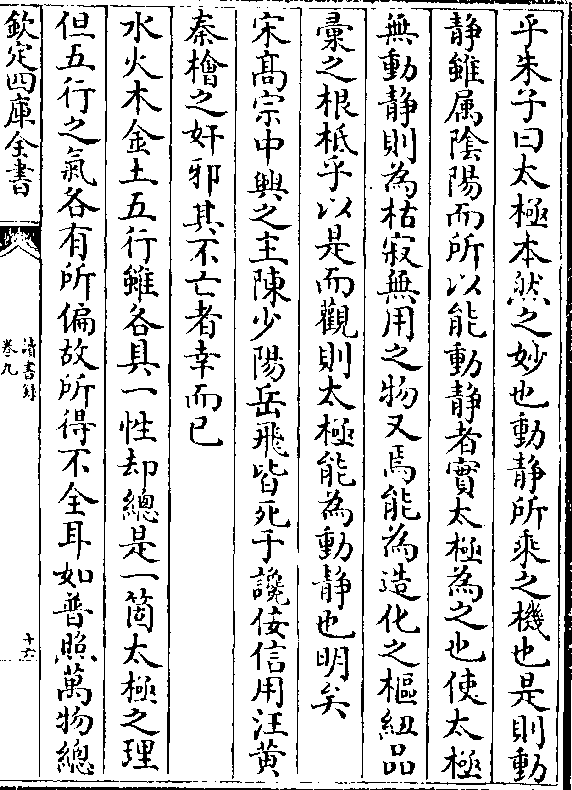 乎朱子曰太極本然之妙也動静所乘之機也是則動
静雖属陰陽而所以能動静者實太極為之也使太極
無動静則為枯寂無用之物又焉能為造化之樞紐品
彚之根柢乎以是而觀則太極能為動静也明矣
宋髙宗中興之主陳少陽岳飛皆死于讒佞信用汪黄
秦檜之奸邪其不亡者幸而已
水火木金土五行雖各具一性却總是一箇太極之理
但五行之氣各有所偏故所得不全耳如普照萬物總
欽定四庫全書
讀書録
卷九
十六